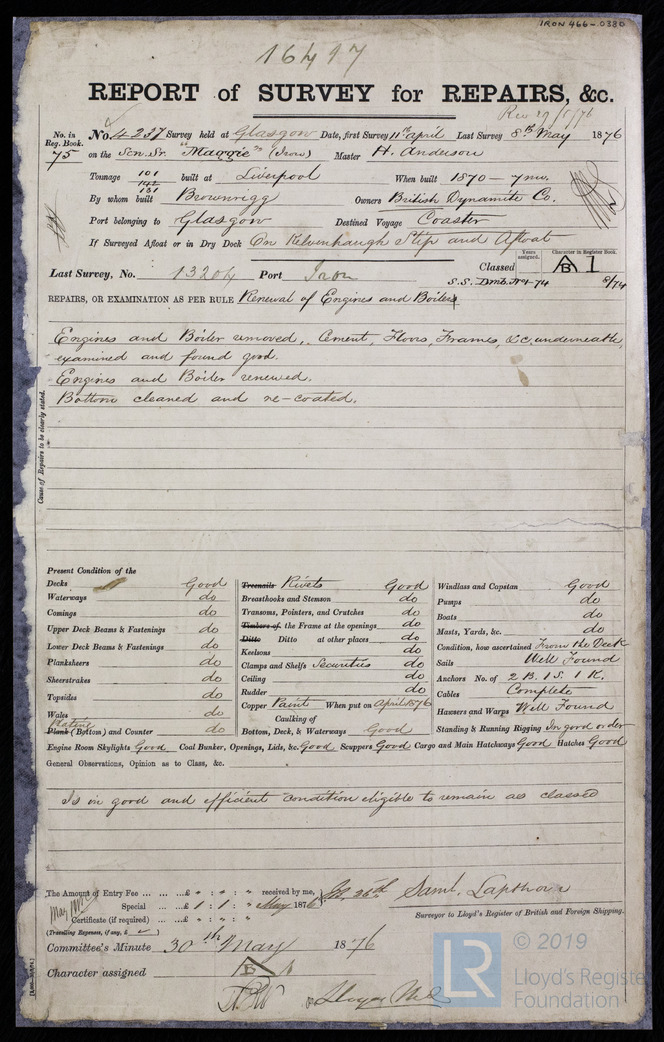 IRON 466-0380
16417
REPORT of SURVEY for REPAIRS, &c.
No. in Reg. Book. 75
No. 4237 Survey held at Glasgow Date, first Survey 11th april Last Survey 8th May 1876
on the Scn. Sr. "Maggie" (Iron) Master H. Anderson
Tonnage 101 built at Liverpool When built 1870 - 7 mo.
By whom built Brownrigg Owners British Dynamite Co.
Port belonging to Glasgow Destined Voyage Coaster
If Surveyed Afloat or in Dry Dock On Kelvinhaugh Slip and Afloat
Last Survey, No. 13204 Port Iron Classed Years assigned. Character in Register Book. A B 1
S.S. 74 8/74
REPAIRS, OR EXAMINATION AS PER RULE Renewal of Engines and Boilers
Engines and Boiler removed, Cement, Floors, Frames, &c, underneath,
examined and found good.
Engines and Boiler renewed.
Bottom cleaned and re-coated.
Cause of Repairs to be clearly stated.
Present Condition of the
Decks Good
Waterways do
Comings do
Upper Deck Beams & Fastenings do
Lower Deck Beams & Fastenings do
Planksheers do
Sheerstrakes do
Topsides do
Wales do
Plating
Plank (Bottom) and Counter do
Treenails Rivets Good
Breasthooks and Stemson do
Transoms, Pointers, and Crutches do
Timbers of the Frame at the openings do
Ditto Ditto at other places do
Keelsons do
Clamps and Shelfs Securities do
Ceiling do
Rudder do
Copper Paint When put on April 1876
Caulking of
Bottom, Deck, & Waterways Good
Windlass and Capstan Good
Pumps do
Boats do
Masts, Yards, &c. do
Condition, how ascertained From the Deck
Sails Well Found
Anchors No. of 2 B. 1 S. 1 K.
Cables Complete
Hawsers and Warps Well Found
Standing & Running Rigging In good order
Engine Room Skylights Good Coal Bunker, Openings, Lids, &c. Good Scuppers Good Cargo and Main Hatchways Good Hatches Good
General Observations, Opinion as to Class, &c.
Is in good and efficient condition eligible to remain as classed
The Amount of Entry Fee ... £ " : " : " received by me,
Special ... £ 1 : 1 : " May 1876
Certificate (if required) ... £ " : " : "
(Travelling Expenses, if any, £ )
Saml. Lapthorn
Surveyor to Lloyd's Register of British and Foreign Shipping.
Committee's Minute 30th May 1876
Character assigned A B 1
LR
© 2019
Lloyd's Register
Foundation